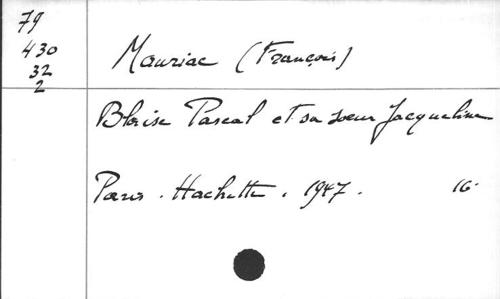 79
430
32
2
Mauriac (François)
Blaise Pascal et sa soeur Jacqueline
Paris. Hachette. 1947. 16.